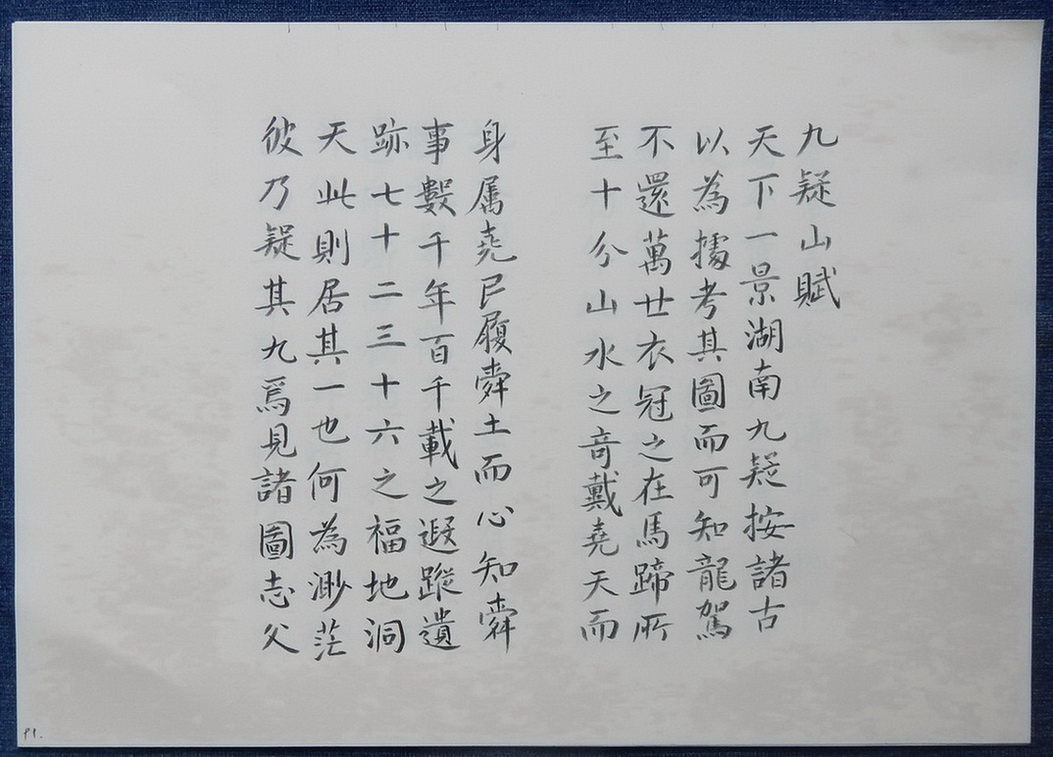 九疑山賦
天下一景湖南九疑按諸古
以為據考其圖而可知龍駕
不還萬廿衣冠之在馬蹄所
至十分山水之竒戴堯天而
身属堯民履舜土而心知舜
事數千年百千載之遐蹤遺
跡七十二三十六之福地洞
天此則居其一也何為渺茫
彼乃疑其九焉見諸圖志父
P1.